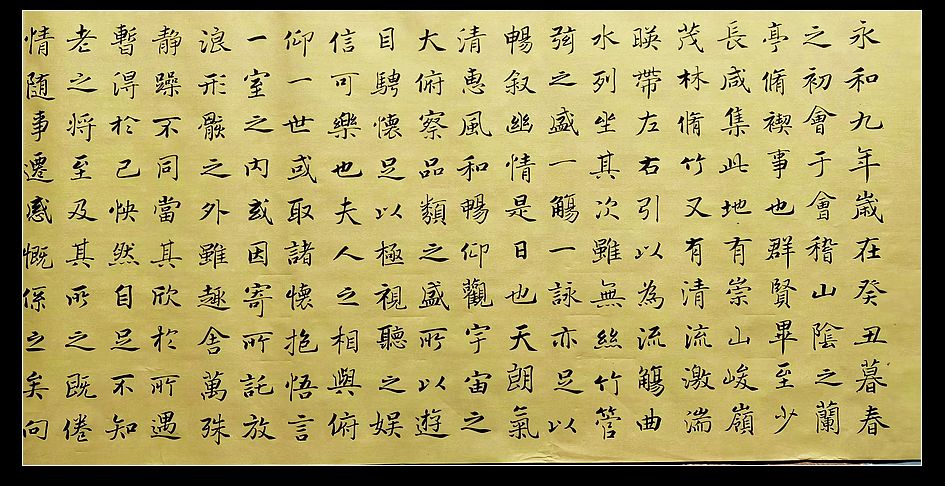 永和九年歲在癸丑暮春
之初會于會稽山陰之蘭
亭脩禊事也群賢畢至少
長咸集此地有崇山峻嶺
茂林脩竹又有清流激湍
暎帶左右引以為流觴曲
水列坐其次雖無絲竹管
弦之盛一觴一詠亦足以
暢叙幽情是日也天朗氣
清惠風和暢仰觀宇宙之
大俯察品類之盛所以遊
目騁懷足以極視聽之娱
信可樂也夫人之相與俯
仰一世或取諸懷抱悟言
一室之內或因寄所託放
浪形骸之外雖趣舍萬殊
静躁不同當其欣於所遇
暫得於己怏然自足不知
老之將至及其所之既倦
情隨事遷感慨係之矣向